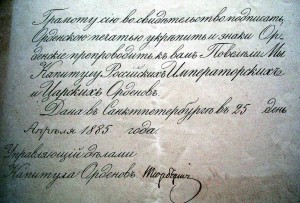 Грамоту сію во свидѣтельство подписать,
Орденскою печатью укрѣпить и знаки Ор-
денскіе препроводить къ вамъ Повелѣли Мы
Капитулу Россійскихъ Императорскихъ
и Царскихъ Орденовъ.
Дана въ Санктпетербургѣ въ 25 день
Апрѣля 1885 года.
Управляющій дѣлами
Капитула Орденовъ